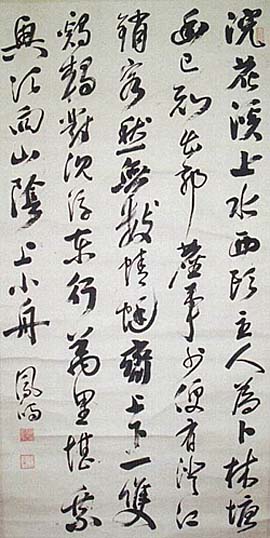 浣花溪上水西頭主人為卜林塘
幽已知出郭塵事少便有澄江
銷客愁無數蜻蜓齊上下一雙
鸂鶒對沈浮東行萬里堪乘
興須向山陰上小舟
鳳鳴